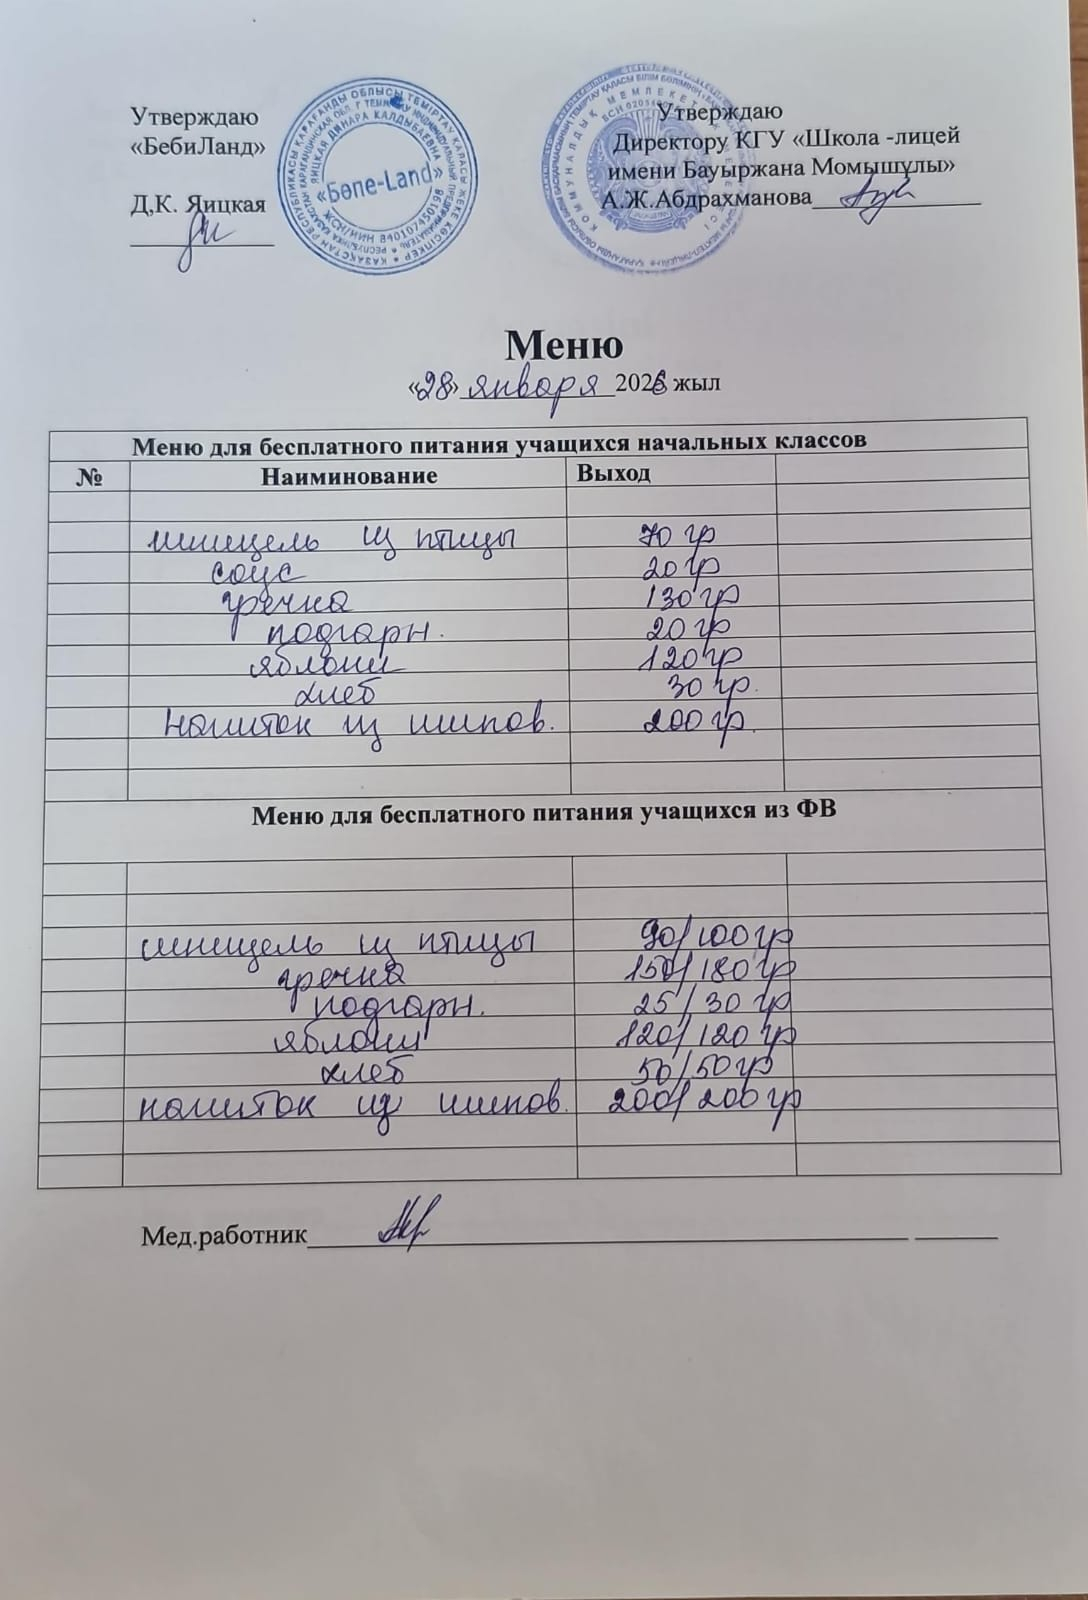 Утверждаю
«БебиЛанд»
Д,К. Яицкая
«Бөпе-Land»
ЯИЦКАЯ ДИНАРА КАЛДЫБАЕВНА
ЖСН/ИИН 840107450198
Утверждаю
Директору КГУ «Школа -лицей
имени Бауыржана Момышұлы»
А.Ж.Абдрахманова
Меню
«28» января 2026 жыл
Меню для бесплатного питания учащихся начальных классов
№ Наиминование Выход
шницель из птицы 70 гр
соус 20 гр
гречка 130 гр
подгарн. 20 гр
яблоки 120 гр
хлеб 30 гр.
Напиток из шипов. 200 гр.
Меню для бесплатного питания учащихся из ФВ
шницель из птицы 90/100 гр
гречка 150/180 гр
подгарн. 25/30 гр
яблоки 120/120 гр
хлеб 50/50 гр
напиток из шипов. 200/200 гр
Мед.работник